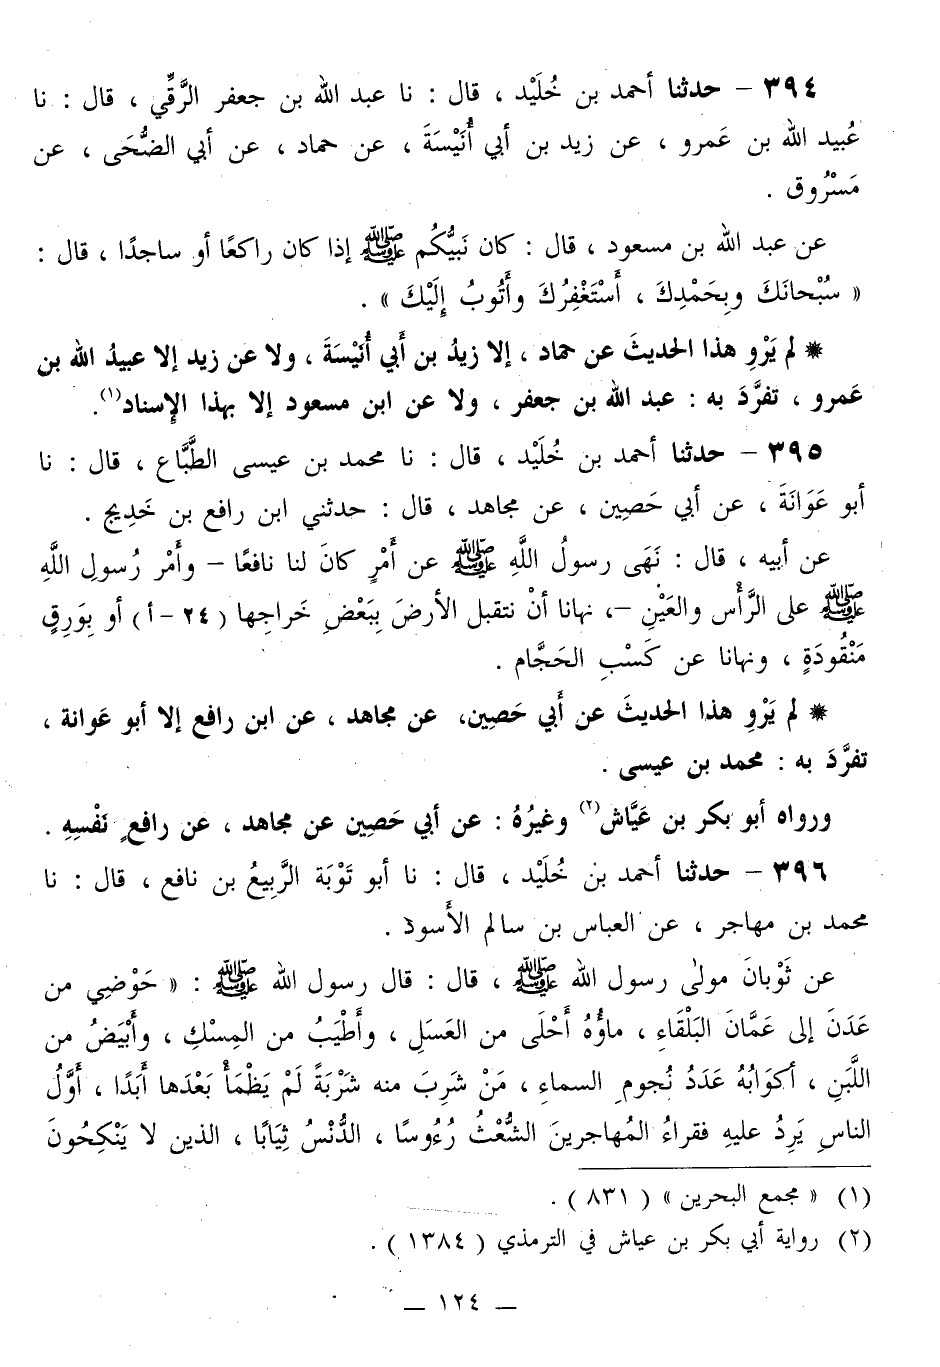 ٣٩٤ – حدثنا أحمد بن خُلَيْد ، قال : نا عبد الله بن جعفر الرَّقِّي ، قال : نا
عُبيد الله بن عَمرو ، عن زيد بن أبي أُنَيْسَةَ ، عن حماد ، عن أبي الضُّحَى ، عن
مَسْرُوق .
عن عبد الله بن مسعود ، قال : كان نَبيُّكُم ﷺ إذا كان راكعًا أو ساجدًا ، قال :
« سُبْحانَكَ وبِحَمْدِكَ ، أَسْتَغْفِرُكَ وأَتُوبُ إِلَيْكَ » .
* لم يَرْوِ هذا الحديثَ عن حماد ، إلا زيدُ بن أَبي أُنَيْسَةَ ، ولا عن زيد إلا عبيدُ الله بن
عَمرو ، تفرَّدَ به : عبد الله بن جعفر ، ولا عن ابن مسعود إلا بهذا الإِسناد(١).
٣٩٥ – حدثنا أحمد بن خُلَيْد ، قال : نا محمد بن عيسى الطَّبَّاع ، قال : نا
أبو عَوَانَةَ ، عن أبي حَصِين ، عن مجاهد ، قال : حدثني ابن رافع بن خَدِيج .
عن أبيه ، قال : نَهَى رسولُ اللَّهِ ﷺ عن أَمْرٍ كانَ لنا نافعًا – وأَمْر رُسولِ اللَّهِ
ﷺ على الرَّأْس والعَيْنِ –، نهانا أنْ نتقبل الأرضَ بِبَعْضِ خَراجِها ( ٢٤ – أ ) أو بِوَرِقٍ
مَنْقُودَةٍ ، ونهانا عن كَسْبِ الحَجَّام .
* لم يَرْوِ هذا الحديثَ عن أَبي حَصِين، عن مجاهد ، عن ابن رافع إلا أبو عَوانة ،
تفرَّدَ به : محمد بن عيسى .
ورواه أبو بكر بن عَيَّاش(٢) وغيرُهُ : عن أبي حَصِين عن مجاهد ، عن رافعٍ نَفْسِهِ .
٣٩٦ – حدثنا أحمد بن خُلَيْد ، قال : نا أبو تَوْبَة الرَّبِيعُ بن نافع ، قال : نا
محمد بن مهاجر ، عن العباس بن سالم الأَسود .
عن ثَوْبانَ مولىٰ رسول الله ﷺ ، قال : قال رسول الله ﷺ : « حَوْضِي من
عَدَنَ إلى عَمَّانَ البَلْقَاءِ ، ماؤُهُ أَحْلَى من العَسَلِ ، وأَطْيَبُ من المِسْكِ ، وأَبْيَضُ من
اللَّبَنِ ، أكوَابُهُ عَدَدُ نُجومِ السماءِ ، مَنْ شَرِبَ منه شَرْبَةً لَمْ يَظْمَأْ بَعْدَها أَبَدًا ، أَوَّلُ
الناسِ يَرِدُ عليهِ فقراءُ المُهاجرينَ الشُّعْثُ رُءُوسًا ، الدُّنْسُ ثِيَابًا ، الذين لا يَنْكِحُونَ
(١) « مجمع البحرين » ( ٨٣١ ) .
(٢) رواية أبي بكر بن عياش في الترمذي ( ١٣٨٤ ) .
– ١٢٤ –